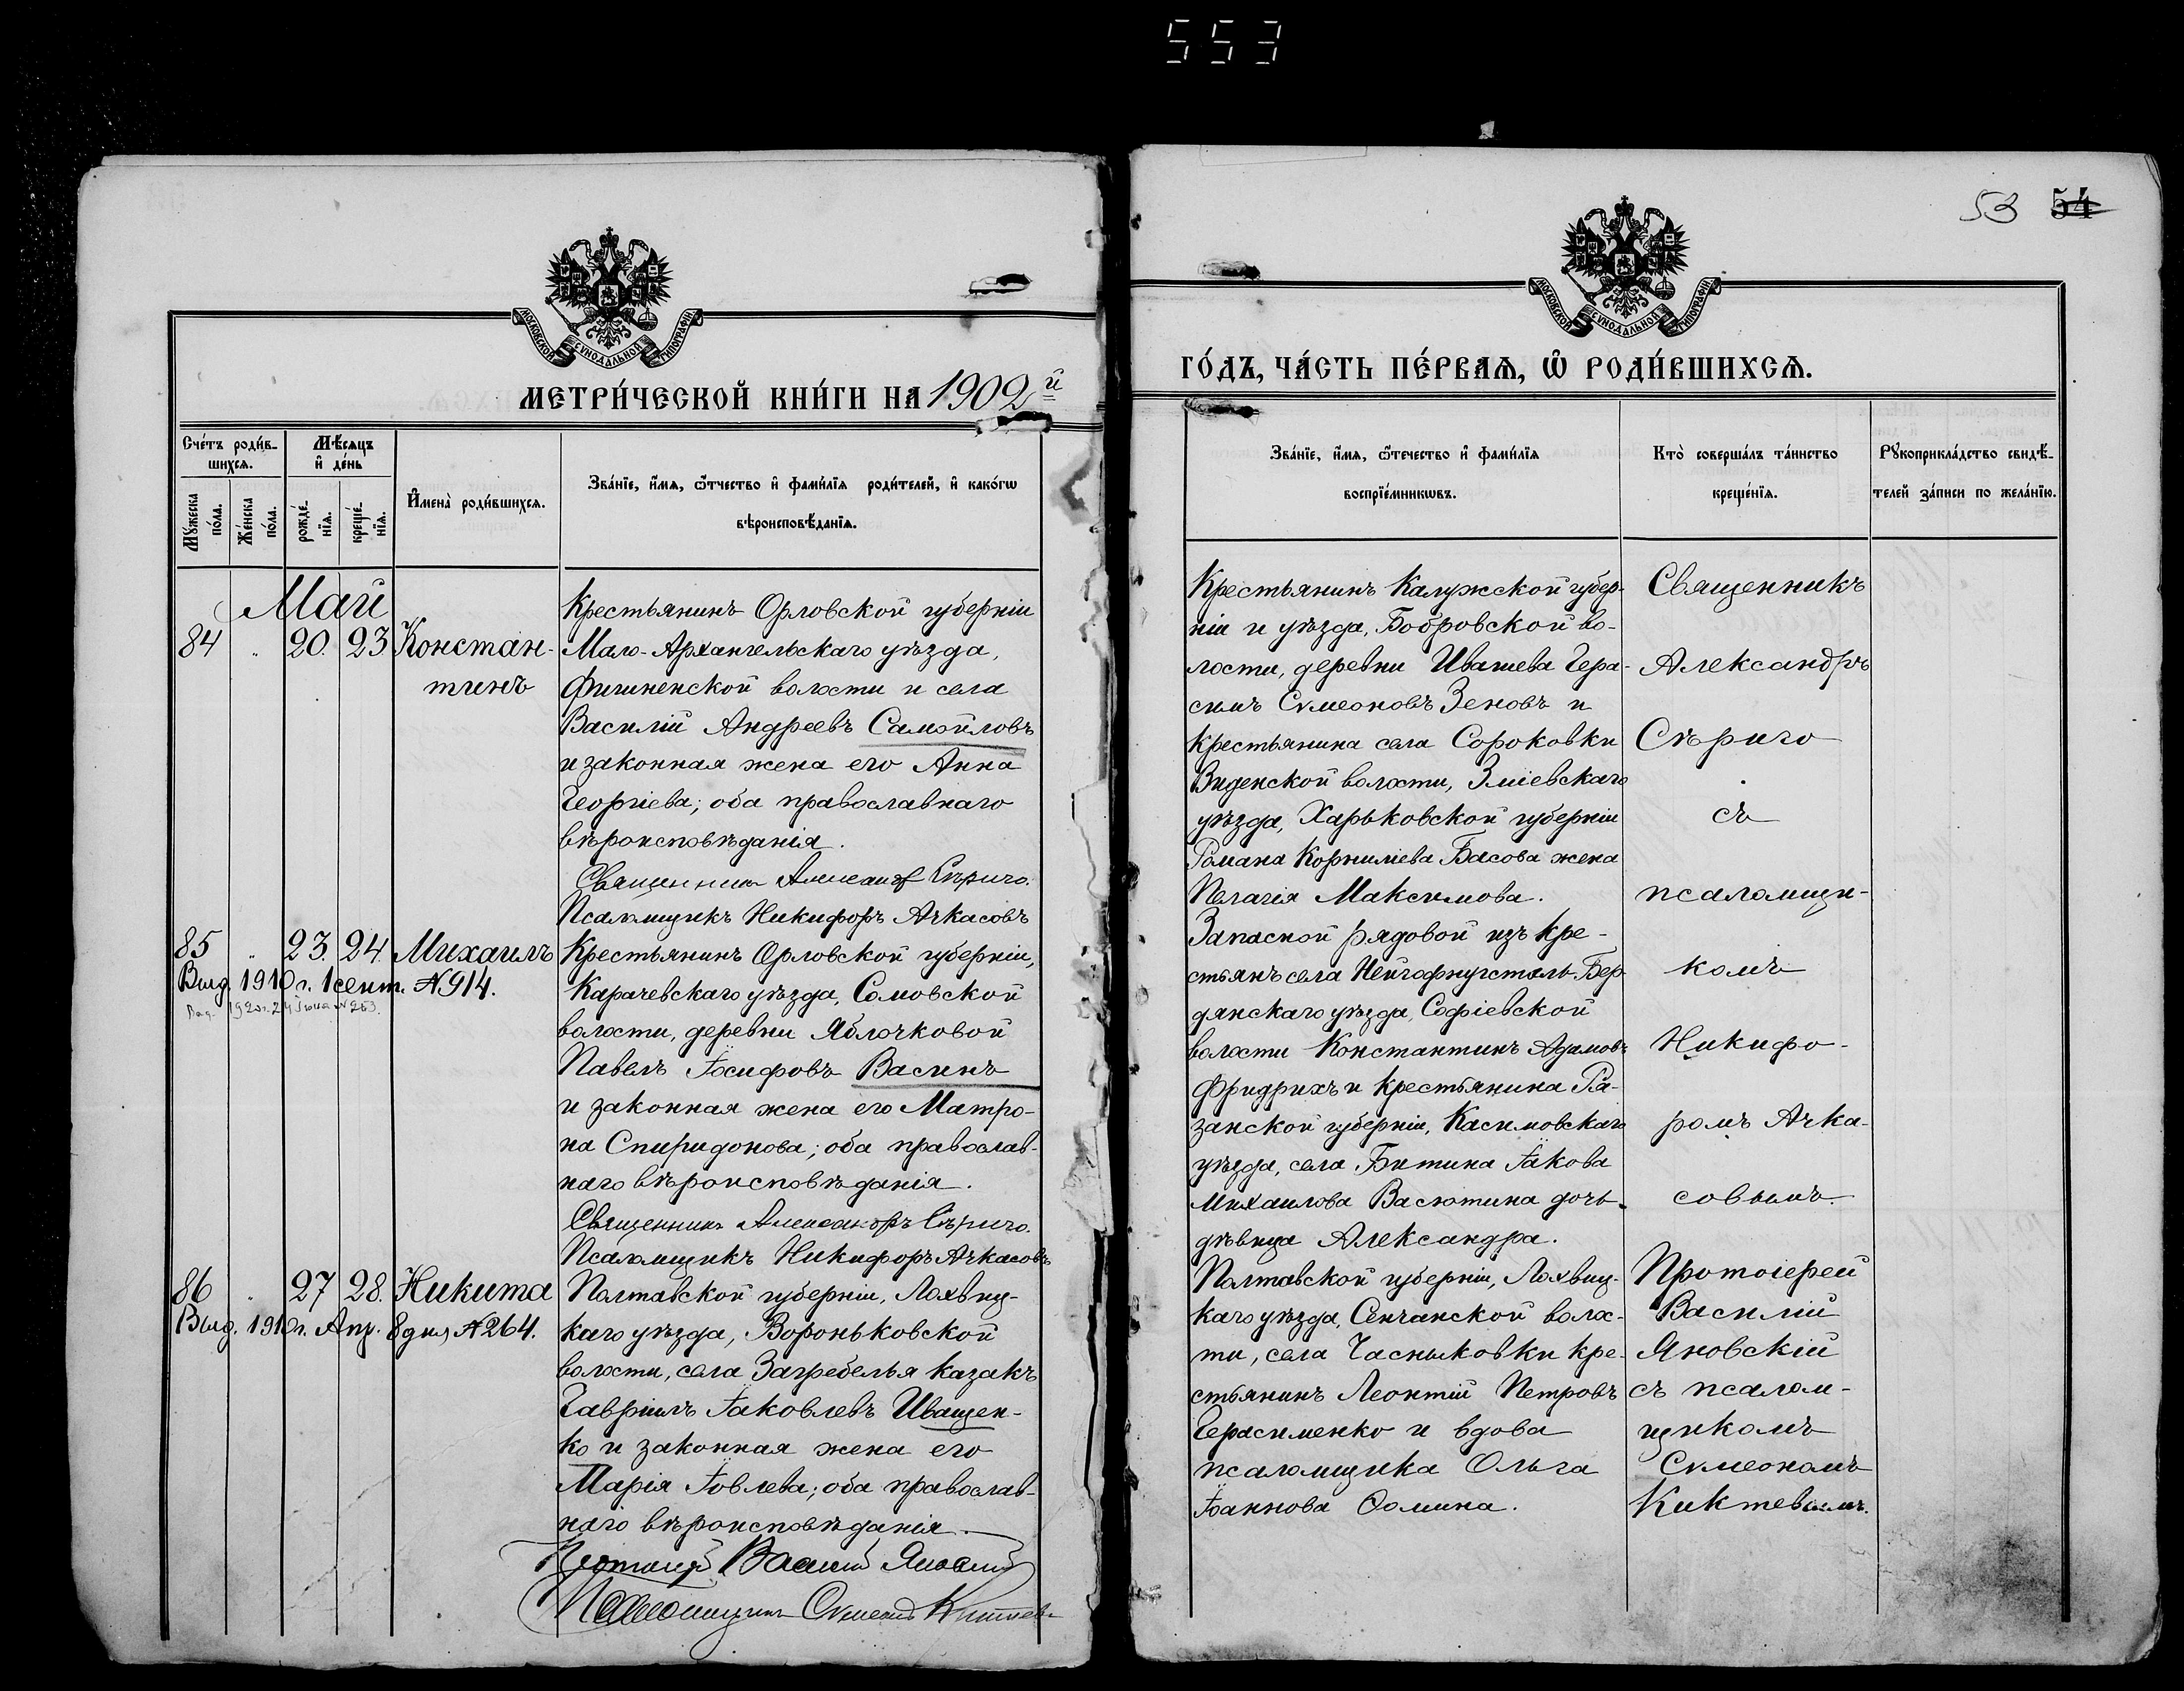 553
53 54
МОСКОВСКОЙ СѴНОДАЛЬНОЙ ТИПОГРАФІИ
МЕТРИ́ЧЕСКОЙ КНИ́ГИ НА 1902й
Сче́тъ роди́в-
шихсѧ.
Мѣ́сяцъ
и҆ де́нь
Мꙋ́жеска
по́ла.
Же́нска
по́ла.
рожде́-
нїѧ.
креще́-
нїѧ.
И҆мена̀ роди́вшихсѧ.
Зва́нїе, и҆́мѧ, ѻ҆́тчество и҆ фами́лїѧ роди́телей, и҆ како́гѡ
вѣроисповѣ́данїѧ.
Май
84 " 20. 23 Констан-
тинъ
Крестьянинъ Орловской губерніи
Мало-Архангельскаго уѣзда,
волости и села
Василій Андреевъ Самойловъ
и законная жена его Анна
Георгіева; оба православнаго
вѣроисповѣданія.
Священникъ Александръ Сѣриго.
Псаломщикъ Никифоръ Ачкасовъ
85 " 23. 24. Михаилъ
Выд. 1910 г. 1 сент. №914.
Крестьянинъ Орловской губерніи,
Карачевскаго уѣзда, Сомовской
волости, деревни Яблочковой
Павелъ Іосифовъ Васинъ
и законная жена его Матро-
на Спиридонова; оба православ-
наго вѣроисповѣданія.
Священникъ Александръ Сѣриго.
Псаломщикъ Никифоръ Ачкасовъ
86 " 27 28. Никита
Выд. 1910 г. Апр. 8 дня №264.
Полтавской губерніи, Лохвиц-
каго уѣзда, Вороньковской
волости, села Загребелья казакъ
Гавріилъ Іаковлевъ Иващен-
ко и законная жена его
Марія Іовлева; оба православ-
наго вѣроисповѣданія.
Протоіерей Василій Яновскій
Псаломщикъ Сѵмеонъ Киктевъ
МОСКОВСКОЙ СѴНОДАЛЬНОЙ ТИПОГРАФІИ
ГО́ДЪ, ЧА́СТЬ ПЕ́РВАѦ, Ѡ҆ РОДИ́ВШИХСѦ.
Зва́нїе, и҆́мѧ, ѻ҆те́чество и҆ фами́лїѧ
воспрїе́мникѡвъ.
Кто̀ соверша́лъ та́инство
креще́нїѧ.
Рꙋкоприкла́дство свидѣ́-
телей за́писи по жела́нїю.
Крестьянинъ Калужской губер-
ніи и уѣзда, Бобровской во-
лости, деревни Ивашева Гера-
симъ Сѵмеоновъ Зеновъ и
крестьянина села Сороковки
волости, Зміевскаго
уѣзда, Харьковской губерніи
Романа Корниліева Басова жена
Пелагія Максимова.
Священникъ
Александръ
Сѣриго
съ
псаломщи-
комъ
Никифо-
ромъ Ачка-
совымъ.
Запасной рядовой изъ кре-
стьянъ села Бер-
дянскаго уѣзда, Софіевской
волости Константинъ Адамовъ
Фридрихъ и крестьянина Ря-
занской губерніи, Касимовскаго
уѣзда, села Бетина Іакова
Михаилова Васютина дочь-
дѣвица Александра.
Полтавской губерніи, Лохвиц-
каго уѣзда, Сенчанской волос-
ти, села Часныковки кре-
стьянинъ Леонтій Петровъ
Герасименко и вдова
псаломщика Ольга
Іоаннова Ѳомина.
Протоіерей
Василій
Яновскій
съ псалом-
щикомъ
Сѵмеономъ
Киктевымъ.